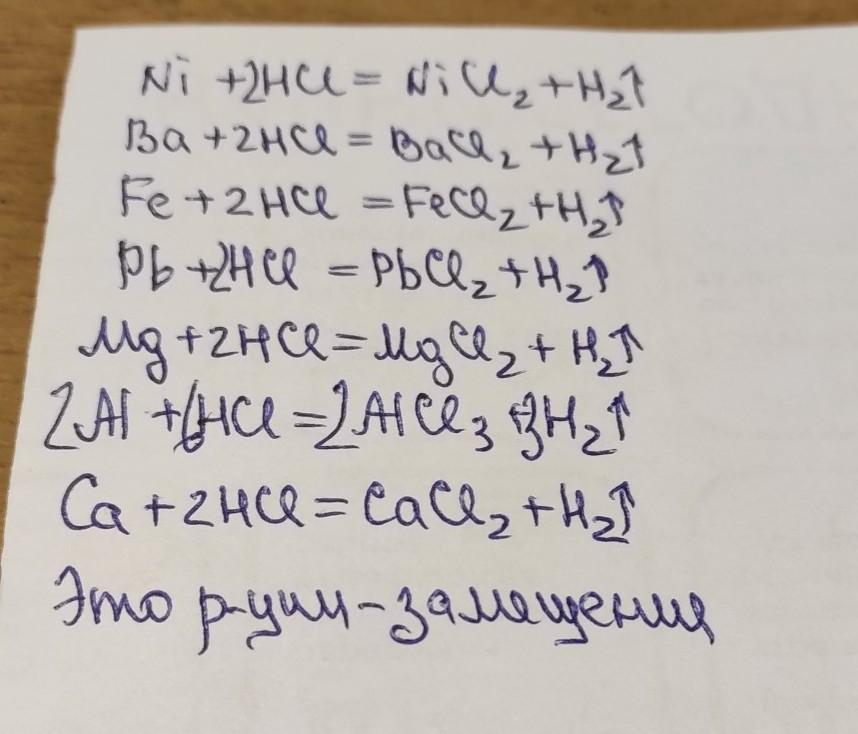 Ni +2HCl = NiCl₂ + H₂↑
Ba + 2HCl = BaCl₂ + H₂↑
Fe + 2HCl = FeCl₂ + H₂↑
Pb + 2HCl = PbCl₂ + H₂↑
Mg + 2HCl = MgCl₂ + H₂↑
2Al + 6HCl = 2AlCl₃ + 3H₂↑
Ca + 2HCl = CaCl₂ + H₂↑
Это р-ции - замещения